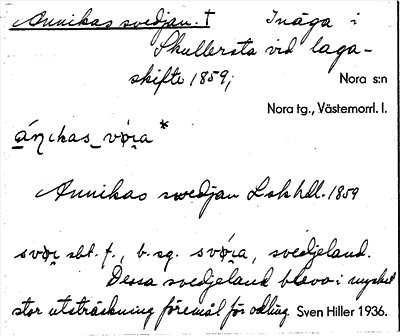 Annikas svedjan. † Inäga i
Skullersta vid laga-
skifte 1859; Nora s:n
Nora tg., Västernorrl. l.
ánikas_ vø̀ɪa *
Annikas swedjan Lskhdl. 1859
svøɪ sbt. f., b. sg. svø̀ɪa, svedjeland.
Dessa svedjeland blevo i mycket
stor utsträckning föremål för odling Sven Hiller 1936.